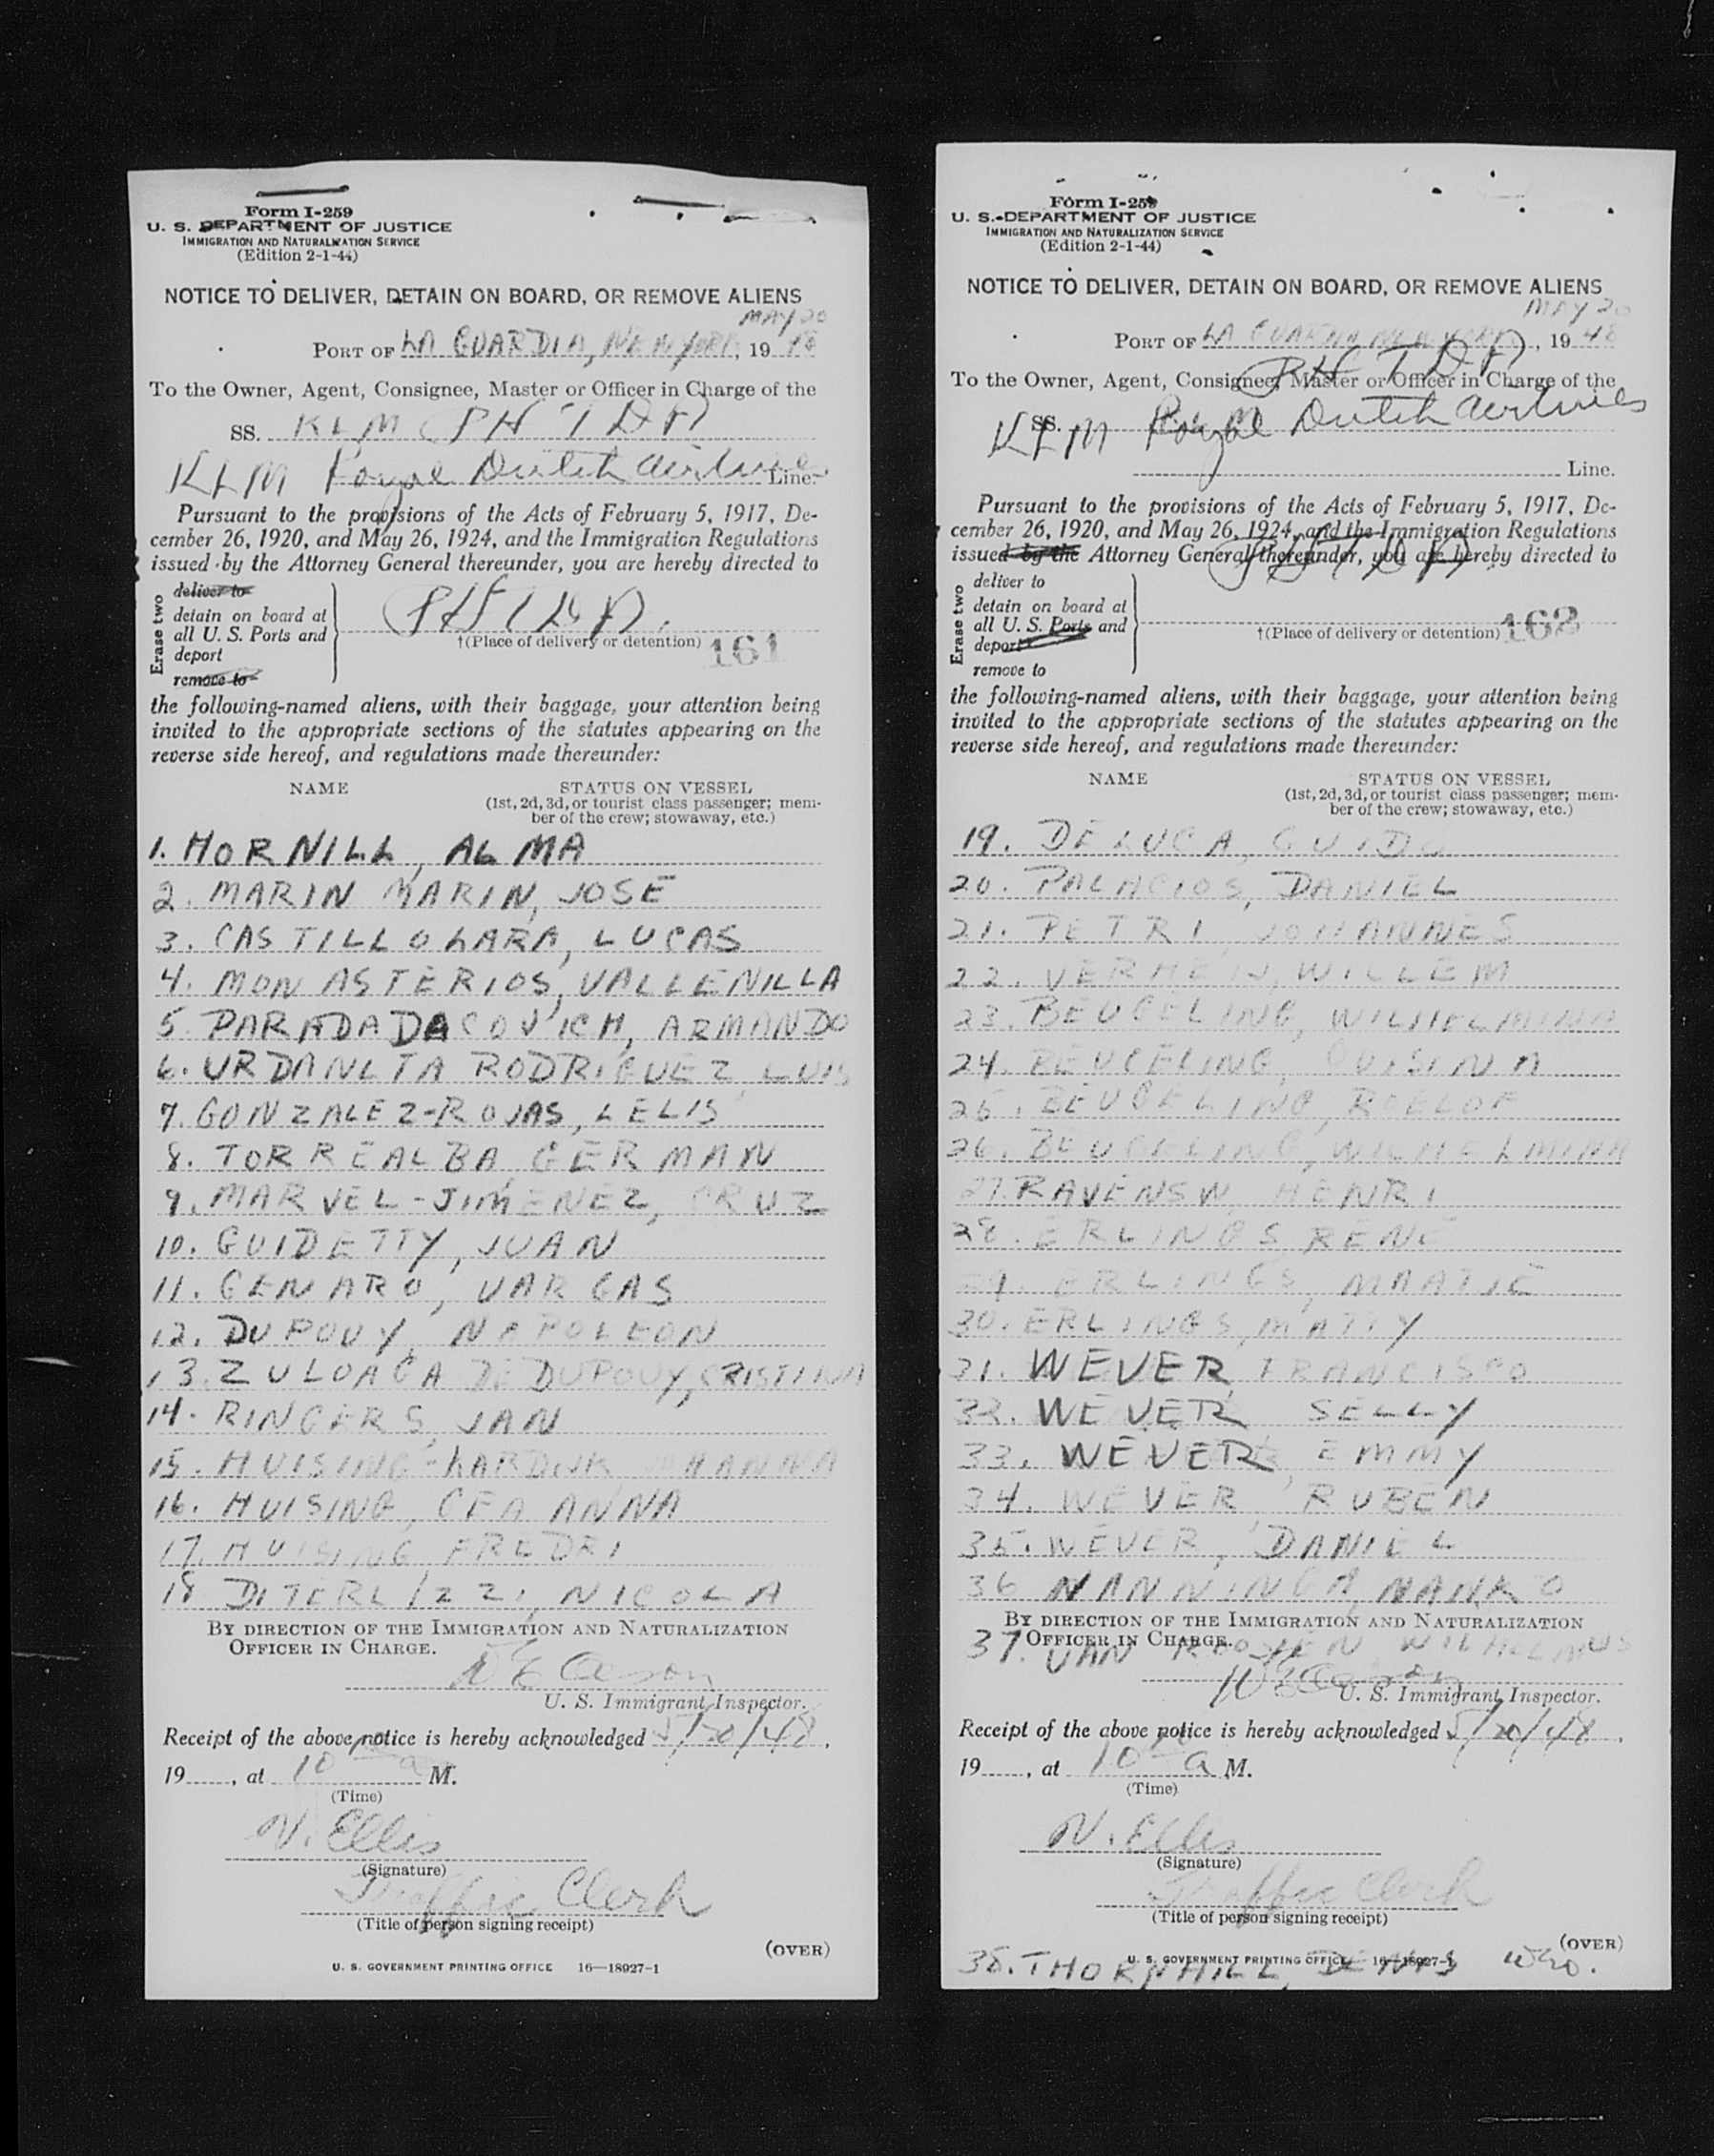 Form I-259
U. S. DEPARTMENT OF JUSTICE
IMMIGRATION AND NATURALIZATION SERVICE
(Edition 2-1-44)
NOTICE TO DELIVER, DETAIN ON BOARD, OR REMOVE ALIENS
MAY 20
PORT OF LA GUARDIA, NEW YORK, 19 48
To the Owner, Agent, Consignee, Master or Officer in Charge of the
SS. KLM (PH TDA)
KLM Royal Dutch Airlines Line.
Pursuant to the provisions of the Acts of February 5, 1917, De-
cember 26, 1920, and May 26, 1924, and the Immigration Regulations
issued by the Attorney General thereunder, you are hereby directed to
Erase two
deliver to
detain on board at
all U. S. Ports and
deport
remove to
(PH TDA).
†(Place of delivery or detention) 161
the following-named aliens, with their baggage, your attention being
invited to the appropriate sections of the statutes appearing on the
reverse side hereof, and regulations made thereunder:
NAME STATUS ON VESSEL
(1st, 2d, 3d, or tourist class passenger; mem-
ber of the crew; stowaway, etc.)
1. HORNILL, ALMA
2. MARIN MARIN, JOSE
3. CASTILLO LARA, LUCAS
4. MONASTERIOS, VALLENILLA
5. PARADA DACOVICH, ARMANDO
6. URDANETA RODRIGUEZ LUIS
7. GONZALEZ-ROJAS, LELIS
8. TORREALBA GERMAN
9. MARVEL-JIMENEZ, CRUZ
10. GUIDETTY, JUAN
11. GENARO, VARGAS
12. DUPOUY, NAPOLEON
13. ZULOAGA DE DUPOUY, CRISTINA
14. RINGERS, JAN
15. HUISING- HANNA
16. HUISING, CEA ANNA
17. HUISING, FREDRI
18 DITERLIZZI, NICOLA
BY DIRECTION OF THE IMMIGRATION AND NATURALIZATION
OFFICER IN CHARGE.
U. S. Immigrant Inspector.
Receipt of the above notice is hereby acknowledged 5/20/48.
19......, at 10 a M.
(Time)
N. Ellis
(Signature)
Traffic Clerk
(Title of person signing receipt)
(OVER)
U. S. GOVERNMENT PRINTING OFFICE 16—18927-1
Form I-259
U. S. DEPARTMENT OF JUSTICE
IMMIGRATION AND NATURALIZATION SERVICE
(Edition 2-1-44)
NOTICE TO DELIVER, DETAIN ON BOARD, OR REMOVE ALIENS
MAY 20
PORT OF LA GUARDIA NEW YORK, 19 48
PH TDA)
To the Owner, Agent, Consignee, Master or Officer in Charge of the
SS. KLM Royal Dutch Airlines
Line.
Pursuant to the provisions of the Acts of February 5, 1917, De-
cember 26, 1920, and May 26, 1924, and the Immigration Regulations
issued by the Attorney General thereunder, you are hereby directed to
(PH TDA).
Erase two
deliver to
detain on board at
all U. S. Ports and
deport
remove to
†(Place of delivery or detention) 162
the following-named aliens, with their baggage, your attention being
invited to the appropriate sections of the statutes appearing on the
reverse side hereof, and regulations made thereunder:
NAME STATUS ON VESSEL
(1st, 2d, 3d, or tourist class passenger; mem-
ber of the crew; stowaway, etc.)
19. DELUCA, GUIDO
20. PALACIOS, DANIEL
21. PETRI, JOHANNES
22. VERHEIJ, WILLEM
23. BEUGELING, WILHELMINA
24. BEUGELING,
25. BEUGELING, ROELOF
26. BEUGELING, WILHELMINA
27. RAVENSW HENRI
28. ERLINGS RENE
29. ERLINGS, MAATJE
30. ERLINGS, MATTY
31. WEVER, FRANCISCO
32. WEVER SELLY
33. WEVER, EMMY
34. WEVER, RUBEN
35. WEVER, DANIEL
36 NANNINGA, NANKO
BY DIRECTION OF THE IMMIGRATION AND NATURALIZATION
OFFICER IN CHARGE.
37. VAN ROOYEN WILHELMUS
U. S. Immigrant Inspector.
Receipt of the above notice is hereby acknowledged 5/20/48.
19......, at 10 a M.
(Time)
N. Ellis
(Signature)
Traffic Clerk
(Title of person signing receipt)
(OVER)
U. S. GOVERNMENT PRINTING OFFICE 16—18927-1
38. THORNHILL, DENIS